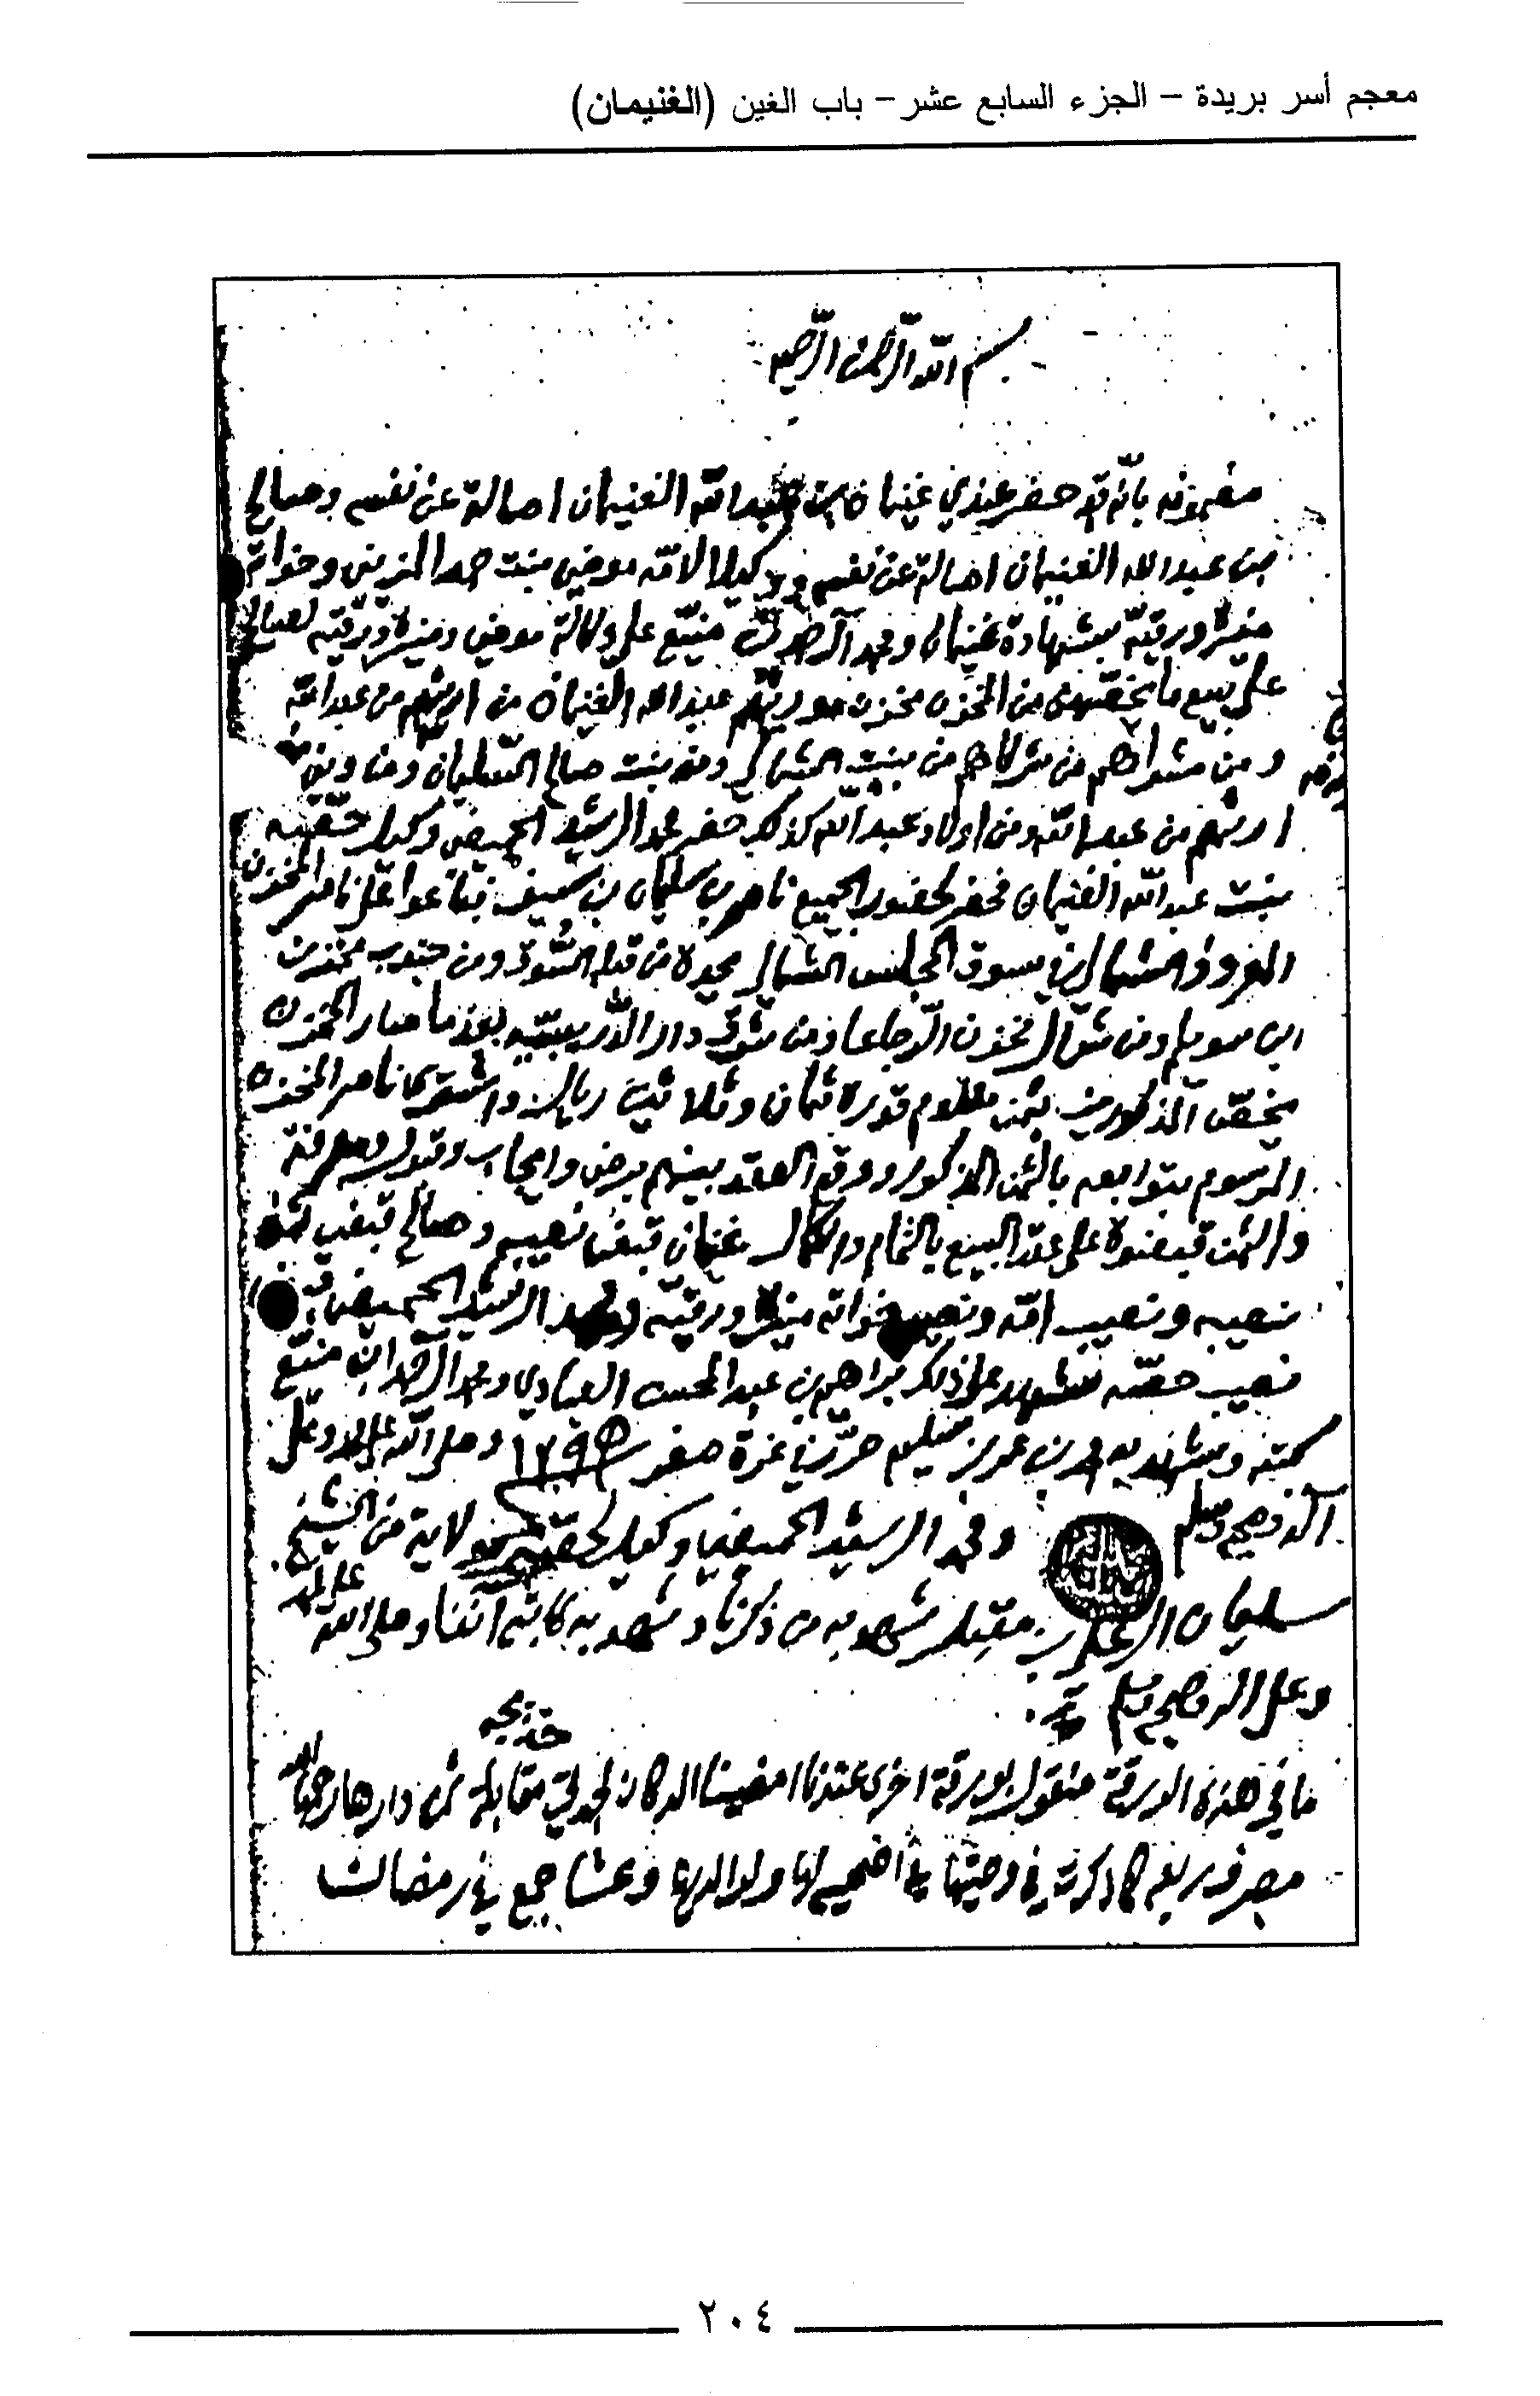 معجم أسر بريدة – الجزء السابع عشر – باب الغين (الغنيمان)
بسم الله الرحمن الرحيم
مضمونه بأنه قد حضر عندي غنيمان بن عبدالله الغنيمان اصالة عن نفسه وصالح
بن عبدالله الغنيمان اصالة عن نفسه ووكيلا لامه موضي بنت حمد المزيني وخواته
منيرة ورقية بشهادة غنيمان ومحمد آل حمدان منيّع على وكالة موضي ومنيرة ورقيه لصالح
على بيع ما يخصّهن من المخزن مخزن مورثهم عبدالله الغنيمان من ارثهم من عبدالله
ومن مشراهم من شركاهم من بنت الشمالي ومن بنت صالح السليمان ومناوبين
ارثهم من عبدالله ومن اولاد عبدالله كذلك حضر محمد الرشيد الحميضي وكيل حصّه
بنت عبدالله الغنيمان فحضر لحضور الجميع ناصر بن سليمان بن سيف فباعوا على ناصر المخزن
المعروف الشمالي في سوق المجلس الشمالي يحده من قبله السوق ومن جنوب مخزن
ابن سويلم ومن شمال مخزن الرجاعا ومن شرق دار الدريبيّه بعد ما صار المخزن
يخصّ المذكورين بثمن معلوم قدره ثمان وثلاثين ريال واشترى ناصر المخزن
المرسوم بتوابعه بالثمن المذكور ووقع العقد بينهم برضى وايجاب وقبول ومعرفة
والثمن قبضوه على عقد البيع بالتمام والكمال غنيمان قبض نصيبه وصالح قبض
نصيبه ونصيب امّه ونصيب خواته منيرة ورقيّه ومحمد الرشيد الحميضي
نصيب حصّه شهد على ذلك براهيم بن عبدالمحسن العبادي ومحمد آل حمدان منيّع
كتبه وشهد به محمد بن عبدالعزيز سليم حرّر في غرة صفر سنة ١٢٩٥ وصلى الله على محمد وعلى
آله وصحبه وسلم
ومحمد الرشيد الحميضي وكيل لحصّه ولاية من الشيخ
سليمان العلي بن مقبل شهد به من ذكرنا وشهد به كاتبه آنفا وصلى الله على محمد
وعلى آله وصحبه وسلم
خديجه
ما في هذه الورقة منقول بورقة اخرى عندنا امضينا الدكان مقابلة دارها رحمها الله
مصرف ريعه كما ذكرت في وصيتها في اضحيه لها ولوالديها وعشا جمع في رمضان
٢٠٤